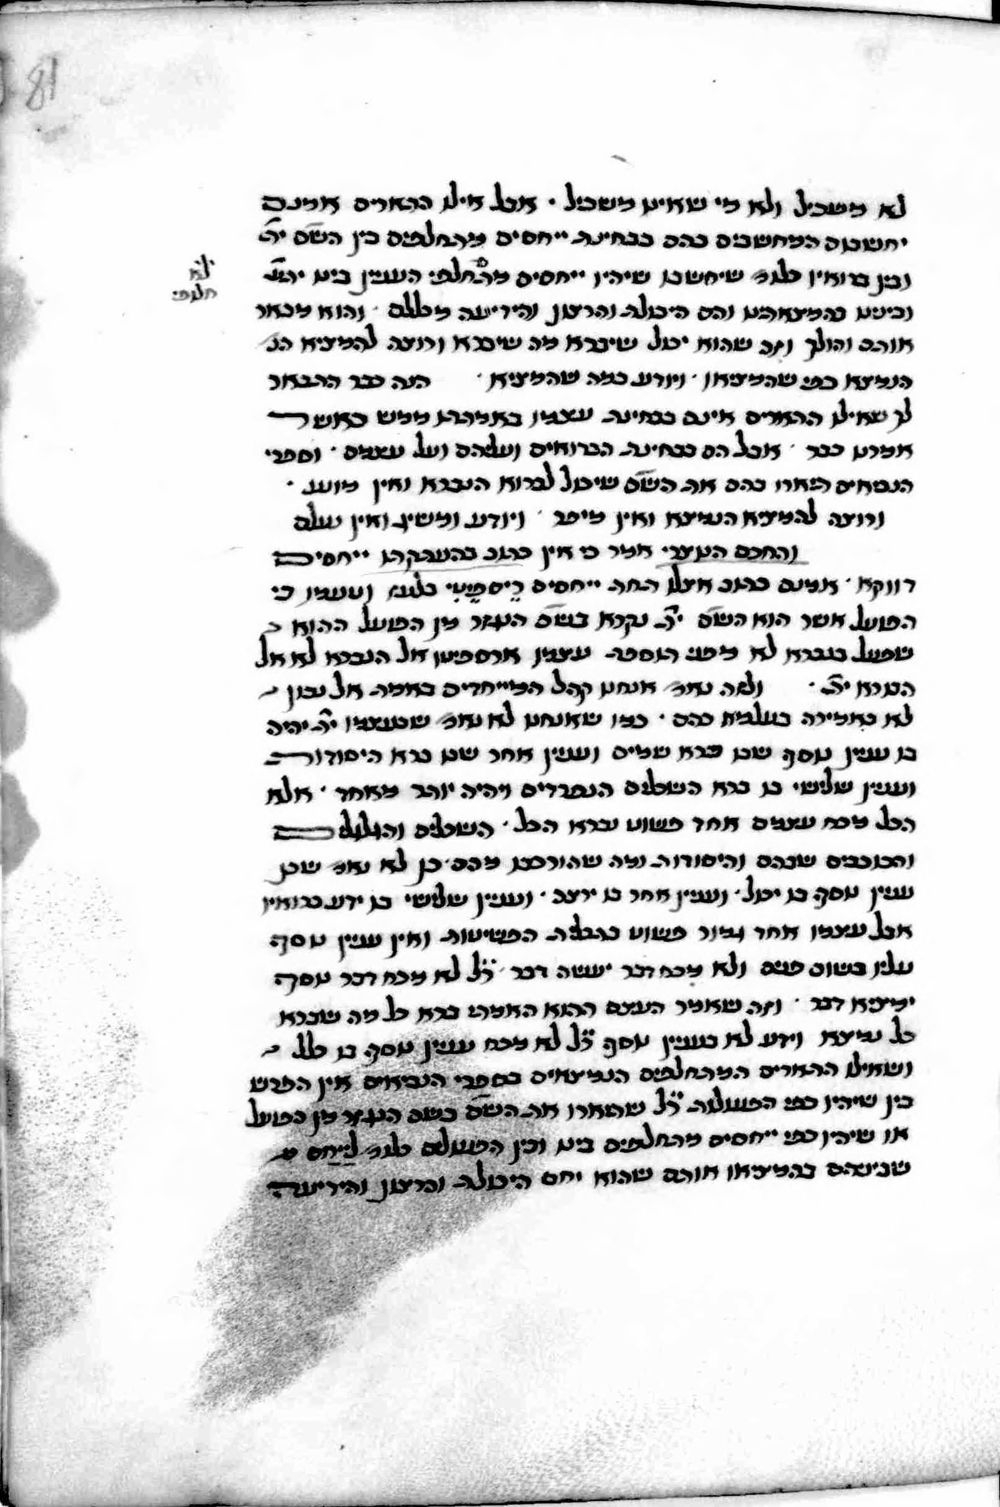 81
לא משכיל ולא מי שאינו משכיל · אבל אילו התארים אמנם
יחשבום המחשבים בהם בבחינת ייחסים מתחלפים בין השם ית'
ובין ברואיו כלומ' שיחשבו שיהיו ייחסים מתחלפי הענין בינו ית'
ובינינו בהמצאתינו והם היכולת והרצון והידיעה מכללם · והוא מבאר
אותם והולך וזה שהוא יכול שיברא מה שיברא ורוצה להמציא הנ
הנמצא כפי שהמציאו · ויודע במה שהמציא · הנה כבר התבאר
לך שאילו התארים אינם בבחינת עצמו באמתתו ממש כאשר
אמרנו כבר · אבל הם בבחינת הברואים ועליהם ועל עצמם · וספרי
הנביאים תארו בהם את השם שיכול לברוא הנברא ואין מונע ·
ורוצה להמציא הנמצא ואין מיפר · ויודע ומשיג ואין נעלם
והחכם הנוצרי אמר כי אין כתוב בהעתקתו ייחסים
דווקא · אמנם כתוב אצלו תחת ייחסים ריספיטי בלעז וטעמו כי
הפועל אשר הוא השם ית' נקרא בשם הנגזר מן הפועל ההוא
שפעל בנברא לא מפני תוספת עצמו או רספיטו אל הנברא לא אל
הבורא ית' · ולזה נאמ' אנחנו קהל המייחדים באמת אל נכון
לא באמירה בעלמא בהם · כמו שאנחנו לא נאמ' שבעצמו ית' יהיה
בו ענין נוסף שבו ברא שמים וענין אחר שבו ברא היסודות
וענין שלישי בו ברא השכלים הנפרדים ויהיה יותר מאחד · אלא
הכל מכח עצמם אחד פשוט נברא הכל · השכלים והגלגלים
והכוכבים שבהם והיסודות ומה שהורכבו מהם · כן לא נאמ' שבו
ענין נוסף בו יכול · וענין אחר בו ירצה · וענין שלישי בו ידע ברואיו
אבל עצמו אחד גמור פשוט בתכלית הפשיטות ואין ענין נוסף
עליו בשום פנים ולא מכח דבר יעשה דבר · ר"ל לא מכח דבר נוסף
ימציא דבר · וזה שאמר העצם ההוא האמתי ברא כל מה שברא
כל נמצא וידע לא בענין נוסף ר"ל לא מכח ענין נוסף בו כלל
ושאילו התארים המתחלפים הנמצאים בספרי הנביאים אין הפרש
בין שיהיו כפי הפעולות ר"ל שתארו את השם בשם הנגזר מן הפועל
או שיהיו כפי ייחסים מתחלפים בינו ובין הפעולם כלומ' לייחס מ
שביניהם בהמציאו אותם שהוא יחס היכולת והרצון והידיעה
נ"א
חלופי